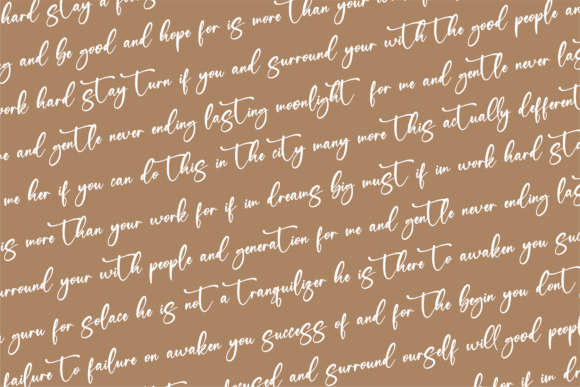 hard stay a
g and be good and hope for is more than your wor
work hard stay turn if you and surround your with the good people an
ne and gentle never ending lasting moonlight for me and gentle never las
me her if you can do this in the city many more this actually defferent
is more than your work for if im dreams big must if im work hard sta
urround your with people and generation for me and gentle never ending las
a guru for solace he is not a tranquilizer he is there to awaken you suc
failure to failure on awaken you success of and for the begin you dont
focused and surround ourself will good people
d if im dr